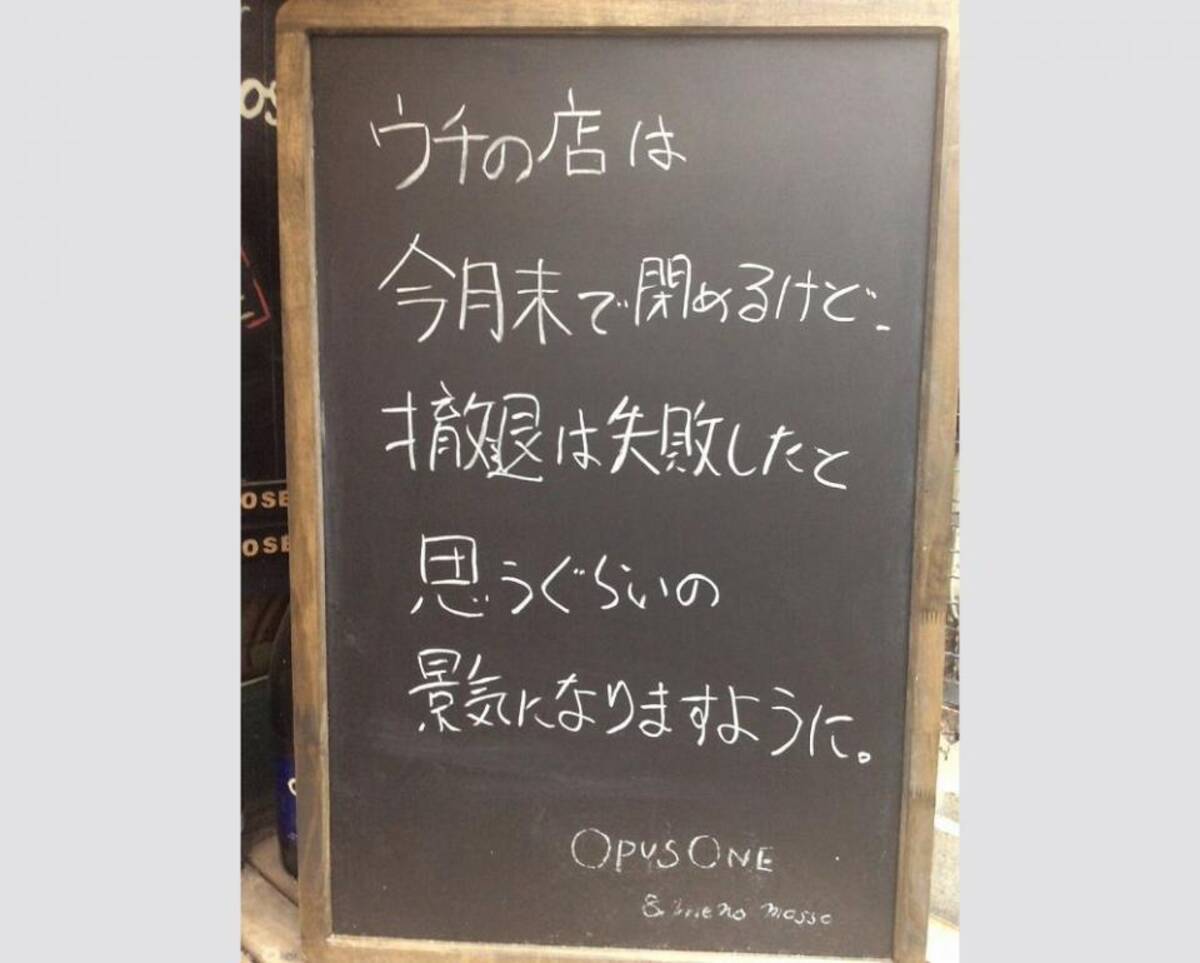 ウチの店は
今月末で閉めるけど、
撤退は失敗したと
思うぐらいの
景気になりますように。
OPUS ONE
&
OSE
OSE
os